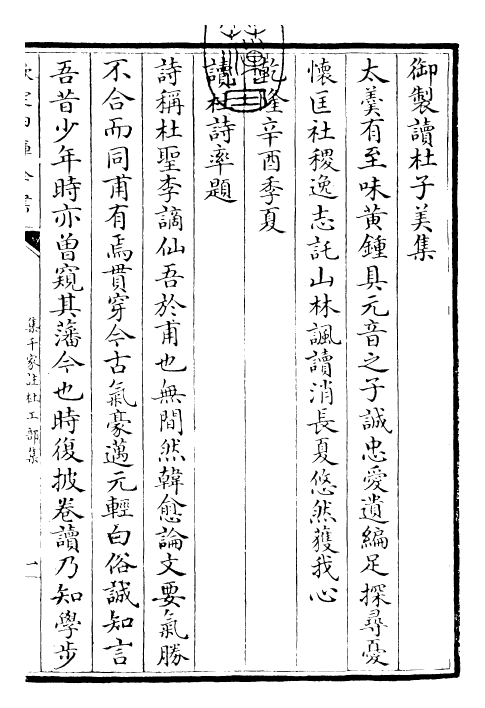 御製讀杜子美集
太羹有至味黃鍾具元音之子誠忠愛遺編足探尋憂
懷匡社稷逸志託山林諷讀消長夏悠然獲我心
乾隆辛酉季夏
讀杜詩率題
詩稱杜聖李謫仙吾於甫也無間然韓愈論文要氣勝
不合而同甫有焉貫穿今古氣豪邁元輕白俗誠知言
吾昔少年時亦曽窺其藩今也時復披卷讀乃知學步
欽定四庫全書
集千家註杜工部集
一